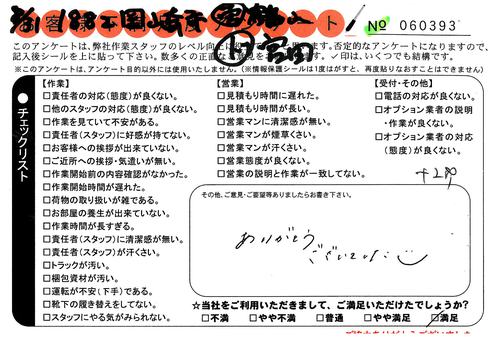 № 060393
このアンケートは、弊社作業スタッフのレベル向上に
否定的なアンケートになりますので、
記入後シールを上に貼って下さい。数多くの正直な
お願いします。✓印は、いくつでも結構です。
※このアンケートは、アンケート目的以外には使用いたしません。(※情報保護シールは1度はがすと、再度貼りなおすことはできません)
●チェックリスト
【作業】
□責任者の対応(態度)が良くない。
□他のスタッフの対応(態度)が良くない。
□作業を見ていて不安がある。
□責任者(スタッフ)に好感が持てない。
□お客様への挨拶が出来ていない。
□ご近所への挨拶・気遣いが無い。
□作業開始前の内容確認がなかった。
□作業開始時間が遅れた。
□荷物の取り扱いが雑である。
□お部屋の養生が出来ていない。
□作業時間が長すぎる。
□責任者(スタッフ)に清潔感が無い。
□責任者(スタッフ)が汗くさい。
□トラックが汚い。
□梱包資材が汚い。
□運転が不安(下手)である。
□靴下の履き替えをしてない。
□スタッフにやる気がみられない。
【営業】
□見積もり時間に遅れた。
□見積もり時間が長い。
□営業マンに清潔感が無い。
□営業マンが煙草くさい。
□営業マンが汗くさい。
□営業態度が良くない。
□営業の説明と作業が一致してない。
【受付・その他】
□電話の対応が良くない。
□オプション業者の説明
・作業が良くない。
□オプション業者の対応
(態度)が良くない。
その他、ご意見・ご要望等ありましたらお書き下さい。
ありがとう
ございました
☆当社をご利用いただきまして、ご満足いただけたでしょうか?
□不満 □やや不満 □普通 □やや満足 □満足